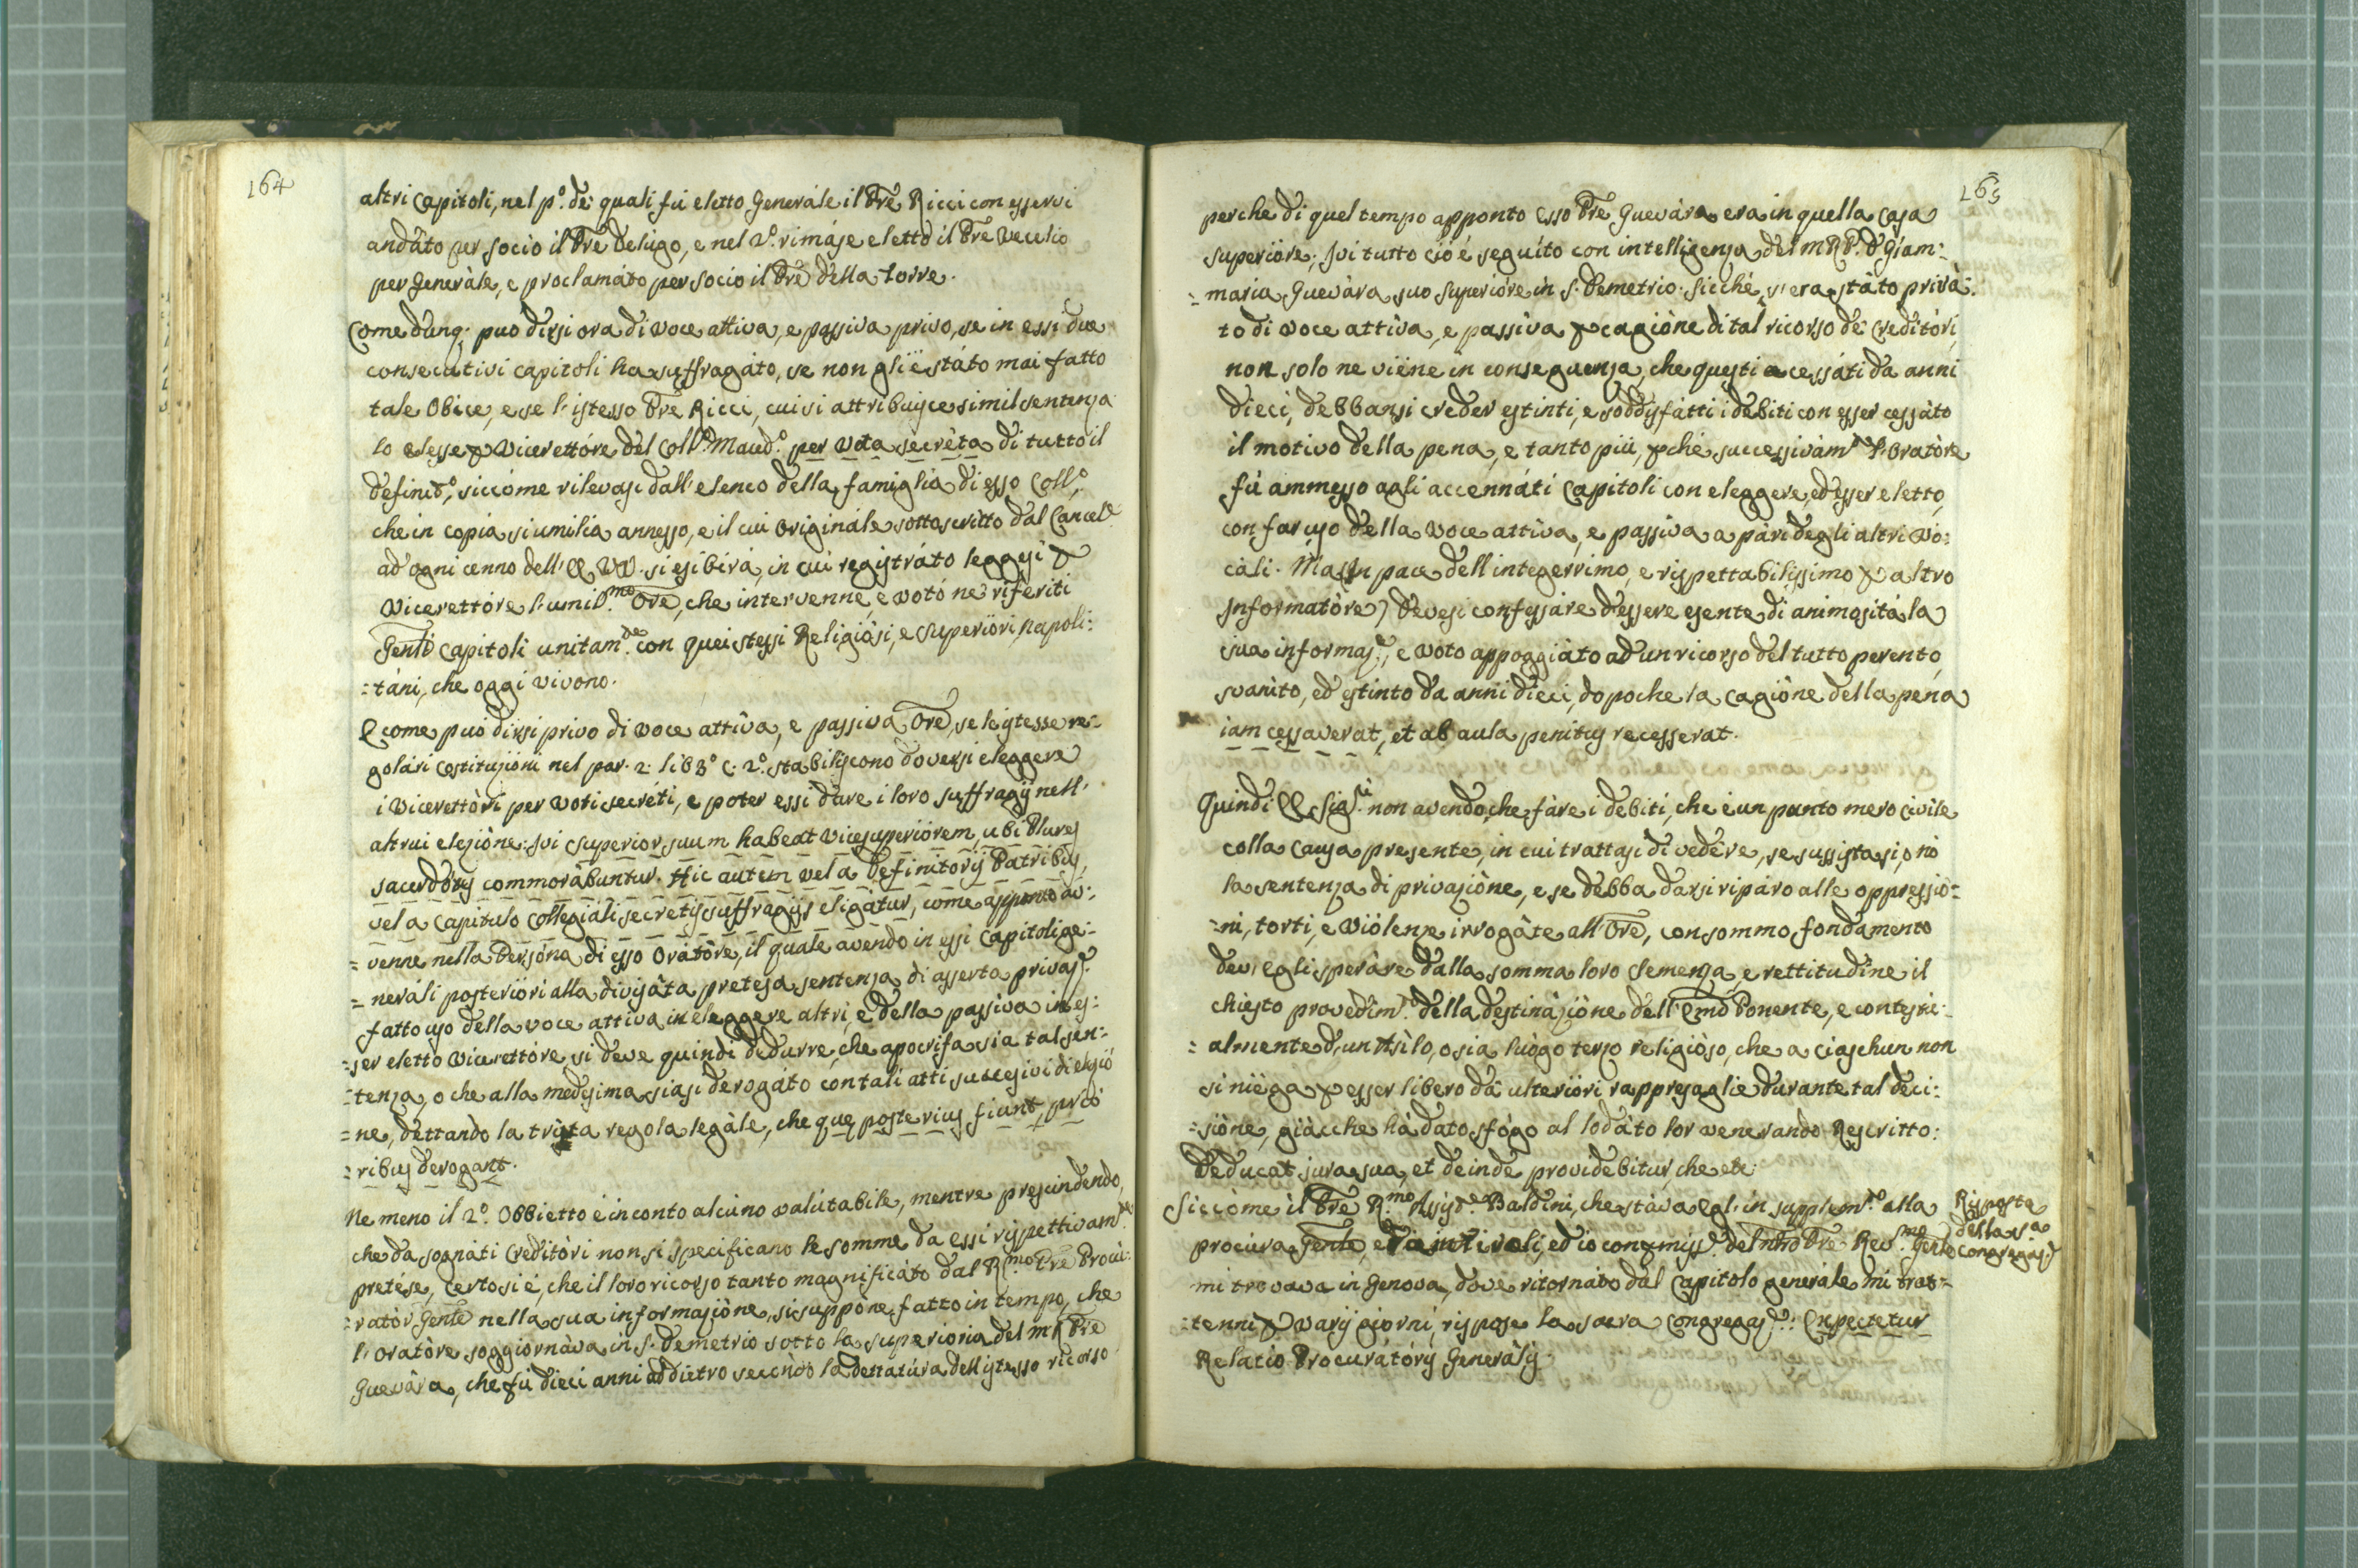 164
altri Capitoli, nel p.º de quali fù eletto Generále il Pre Ricci con esservi
andáto per socio il Pre Delugo, e nel 2º. rimáse eletto il Pre Vecelio
per Generàle, e proclamáto per socio il Pre della Torre.
Come dunq; puo dirsi ora di voce attiva, e passiva privo, se in essi due
consecutivi Capitoli ha suffragáto, se non gli è státo mai fatto
tale Obice, e se l'istesso Pre Ricci, cui si attribuisce simil sentenza
lo elesse p Vicerettóre del Coll.º Maud.º per vota secréta di tutto il
definit.º, siccóme rilevasi dall'elenco della famiglia di esso Coll.º
che in copia si umilia annesso, e il cui Originále sottoscritto dal Cancel.e
ad' ogni cenno dell' EE. VV. si esibirá, in cui registráto leggesi p
Vicerettóre l'umil.mo Ore, che intervenne, e votó ne riferiti
Genli Capitoli unitam.te con quei stessi Religiósi, e Superióri, Napoli:
=táni, che oggi vivono.
E come puó dirsi privo di voce attíva, e passiva Ore, se le istesse re=
golári Costituzioni nel par. 2. lib 3º c. 2º. stabiliscono doversi eleggere
i Vicerettòri per voti secréti, e poter essi dare i loro suffragÿ nell'
altrui elezióne: Ivi Superior suum habeat Vicesuperiórem, ubi Plures
sacerdótes commorábuntur. Hic autem vel a Definitorÿ Patribus,
vel a Capitulo Collegiáli secretis suffragÿs eligátur, come apponto av:
= venne nella Persóna di esso Oratóre, il quale avendo in essi Capitoli ge:
= neráli posteriori alla divisáta pretesa sentenza di asserta privaz.e
fatto uso della voce attiva in eleggere altri, e della passiva in es:
=ser eletto Vicerettóre si deve quindi dedurre, che apocrifa sia tal sen:
=tenza, o che alla medesima siasi derogáto con tali atti succesivi di elezió
= ne, dettando la trita regola legále, che que posterius fiunt, prio
= ribus derogant.
Ne meno il 2º. Obbietto é in conto alcúno valútabile, mentre prescindendo,
che da sognáti Creditòri non si specificano le somme da essi rispettivam.te
pretése, Certo si é, che il loro ricorso tanto magnificáto dal R.mo Pre Procu:
=ratór Genle nella sua informazióne, si suppóne fatto in tempo, che
l'Oratóre soggiornáva in S. Demetrio sotto la superioria del MR Pre
Guevára, che fù dieci anni addietro secóndo la dettatúra dell'istesso ricorso
165
perche di quel tempo apponto esso Pre Guevára era in quella Casa
superióre; Ivi tutto ció é seguíto con intelligenza del MRP. D Giam:
= maria Guevára suo Superióre in S. Demetrio. Sicché, s'era státo privà.
to di voce attíva, e passíva p cagióne di tal ricorso de Creditóri,
non solo ne viéne in conseguenza, che questi acessáti da anni
dieci, debbansi creder estinti, e soddisfátti i debiti con esser cessáto
il motivo della pena, e tanto più, pché successivám.te l'Oratóre
fù ammesso agli accennáti Capitoli con eleggere, ed'esser eletto,
con far uso della voce attíva, e passíva a pári degli altri Vo:
cáli. Ma (In pace dell'integerrimo, e rispettabilissimo p altro
Informatóre) devesi confessáre d'essere esente di animosità la
sua informaz.e, e voto appoggiàto ad un ricorso del tutto perento,
svanito, ed estinto da anni dieci, dopo che la cagióne della pena
iam cessaverat, et ab aula penitus recesserat.
Quindi EE Sig.ri non avendo, che fáre i debiti, che è un punto mero Civile
colla Causa presente, in cui trattasi di vedére, se sussista si, o nó
la sentenza di privazióne, e se debba darsi ripáro alle oppressió=
=ni, torti, e violenze irrogáte all'Ore, con sommo fondamento
dev'egli speráre dalla somma loro Clemenza, e rettitudine il
chiesto provedim.to della destinazióne dell'Emo Ponente, e contesti:
= almente d'un Asílo, o sia luógo terzo religióso, che a ciaschun non
si niéga p esser libero da ulterióri rappresaglie durante tal deci:
=sióne, giácche há dato sfógo al lodáto lor venerando Rescritto:
Deducat jura sua, et deinde providebitur, che etc:
Siccóme il Pre R.mo Assist.e Baldini, che stáva Egl' in supplem.to alla
procúra Genle, era in Tivoli, ed io con pmiss.e del nro Pre Rev.mo Genle
mi trovava in Genova, dove ritornáto dal Capitolo generále mi trat=
=tenni p varÿ giorni, rispose la sacra Congregaz.e: Expectetur
Relatio Procuratórÿ Generális.
Risposta
della s.a
Congregaz.e